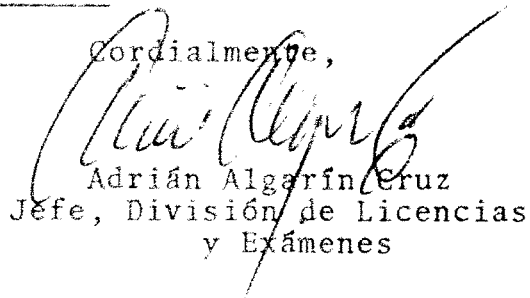 Cordialmente,
Adrián Algarín Cruz
Jefe, División de Licencias
y Exámenes